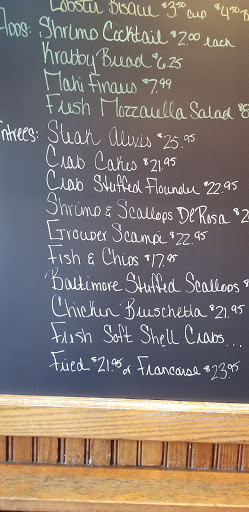 Lobster Bisque $3.50 cup $4.50 B
Apps: Shrimp Cocktail $2.00 each
Krabby Bread $6.25
Mahi Fingers $7.99
Fresh Mozzarella Salad $8
Entrees: Steak Alexis $25.95
Crab Cakes $21.95
Crab Stuffed Flounder $22.95
Shrimp & Scallops DeRosa $2
Grouper Scampi $22.95
Fish & Chips $17.95
Baltimore Stuffed Scallops $
Chicken Bruschetta $21.95
Fresh Soft Shell Crabs...
Fried $21.95 or Francaise $23.95